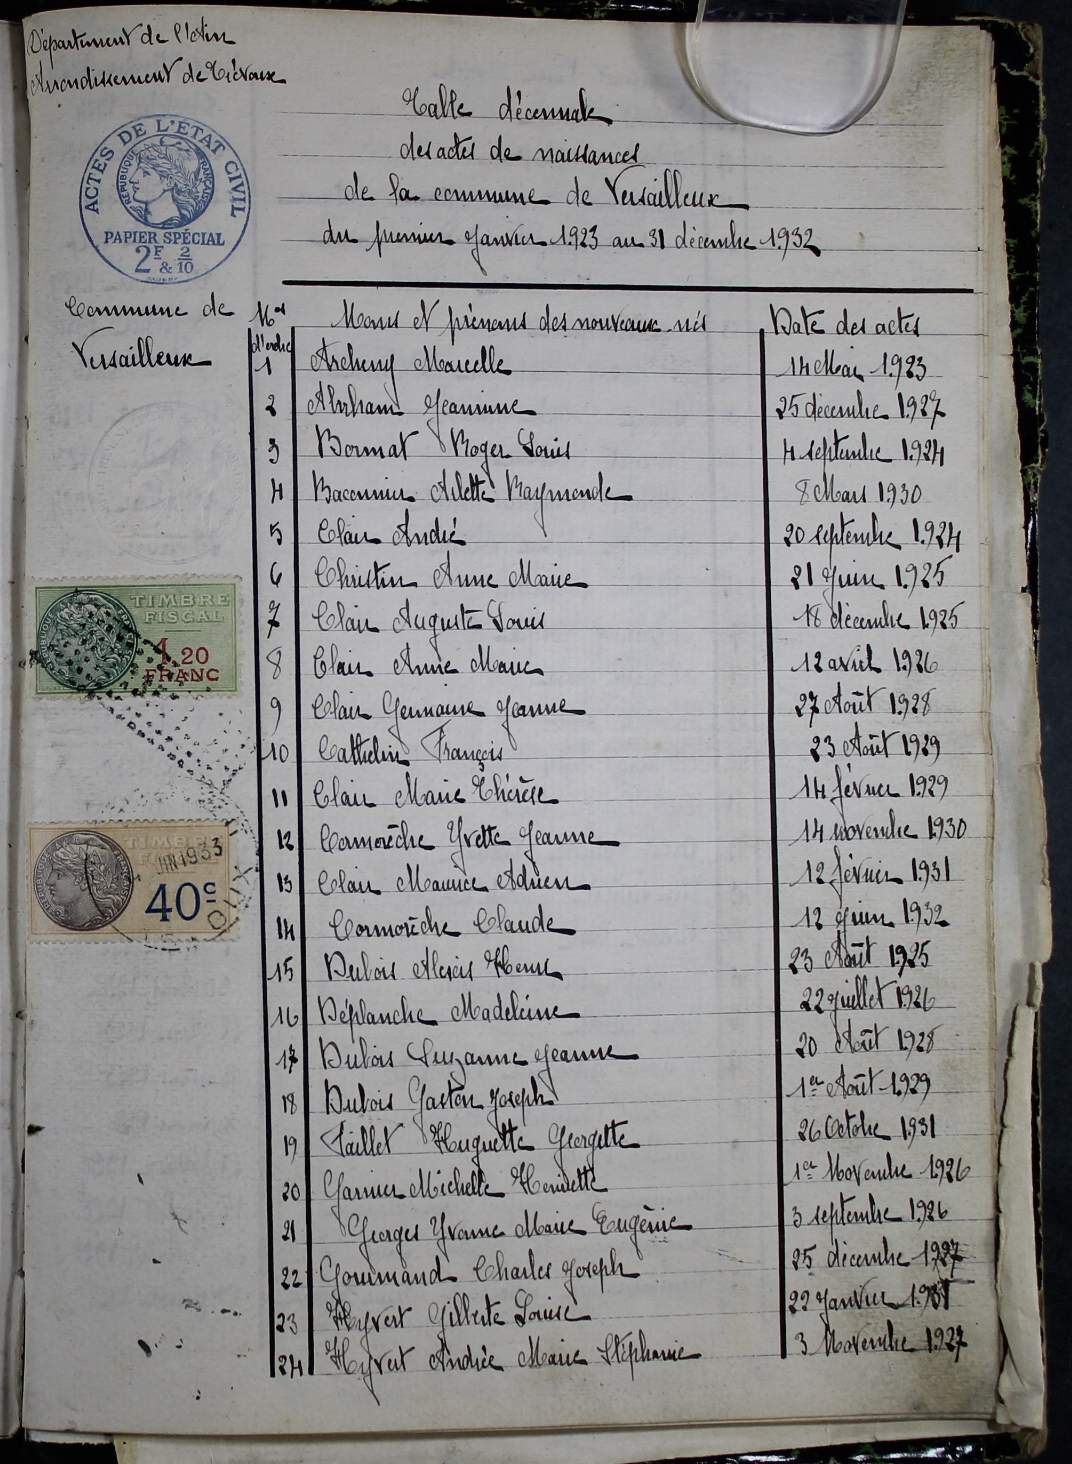 Département de l'Ain
Arrondissement de Trévoux
Table décennale
des actes de naissances
de la commune de Versailleux
du premier Janvier 1923 au 31 décembre 1932
ACTES DE L'ÉTAT CIVIL
RÉPUBLIQUE FRANÇAISE
PAPIER SPÉCIAL
2F & 2/10
Commune de
Versailleux
Nos d'ordre Noms et prénoms des nouveaux nés Date des actes
1 Archeny Marcelle 14 Mai 1923
2 Abraham Jeannine 25 décembre 1927
3 Bornat Roger Louis 4 septembre 1924
4 Baconnier Arlette Raymonde 8 Mars 1930
5 Clair André 20 septembre 1924
6 Christin Anne Marie 21 Juin 1925
7 Clair Auguste Louis 18 décembre 1925
8 Clair Anne Marie 12 avril 1926
9 Clair Germaine Jeanne 27 Août 1928
10 Cathelin François 23 Août 1929
11 Clair Marie Thérèse 14 février 1929
12 Cormorèche Yvette Jeanne 14 novembre 1930
13 Clair Maurice Adrien 12 février 1931
14 Cormorèche Claude 12 Juin 1932
15 Dubois Alexis Henri 23 Août 1925
16 Déplanche Madeleine 22 Juillet 1926
17 Dubois Suzanne Jeanne 20 Août 1928
18 Dubois Gaston Joseph 1er Août 1929
19 Faillet Huguette Georgette 26 Octobre 1931
20 Garnier Michelle Henriette 1er Novembre 1926
21 Georges Yvonne Marie Eugènie 3 septembre 1926
22 Gourmand Charles Joseph 25 décembre 1927
23 Hyvert Gilberte Louise 22 Janvier
24 Hyvert Andrée Marie Stéphanie 3 Novembre 1927
TIMBRE
FISCAL
1.20
FRANC
TIMBRE
JAN 1933
40c